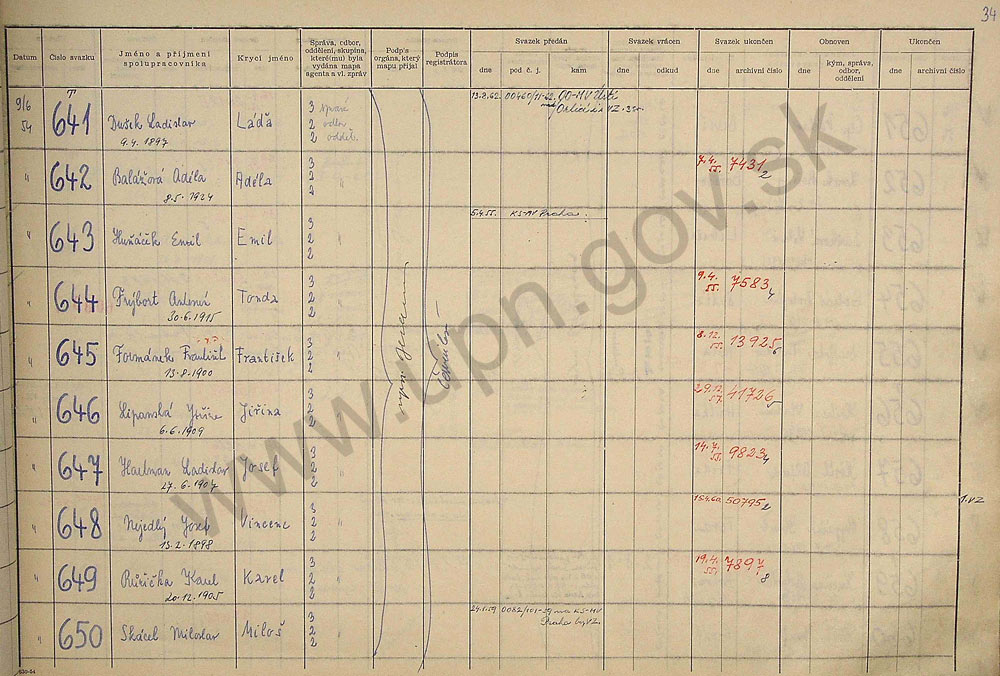 34
Datum
Číslo svazku
Jméno a příjmení
spolupracovníka
Krycí jméno
Správa, odbor,
oddělení, skupina,
které(mu) byla
vydána mapa
agenta a vl. zpráv
Podpis
orgána, který
mapu přijal
Podpis
registrátora
Svazek předán
dne
pod č. j.
kam
Svazek vrácen
dne
odkud
Svazek ukončen
dne
archivní číslo
Obnoven
dne
kým, správa,
odbor,
oddělení
Ukončen
dne
archivní číslo
9/6
54
641
Dušek Ladislav
9.4.1897
Láďa
3 správ
2 odbor
2 odděl.
13.8.62.
" 642
Balážová Adéla
8.5.1924
Adéla
3
2
2
7.4.
55.
7431
2
" 643
Huňáček Emil
Emil
3
2
2
5.4.55. KS-MV Praha.
" 644
Frýbort Antonín
30.6.1915
Tonda
3
2
2
9.4.
55.
7583
4
" 645
Formánek František
13.8.1900
František
3
2
2
8.12.
55.
13925
6
" 646
Lipanská Jiřina
6.6.1909
Jiřina
3
2
2
29.12.
57.
41726
5
" 647
Ladislav
27.6.1907
Josef
3
2
2
14.7.
55.
9823
4
" 648
Nejedlý Josef
13.2.1898
Vincenc
3
2
2
15.4.60.
50795
2
1.VZ
" 649
Růžička Karel
20.12.1905
Karel
3
2
2
19.4.
55.
7897
8
" 650
Skácel Miloslav
Miloš
3
2
2
24.1.59 0082/101-59 na KS-MV
Praha
www.upn.gov.sk